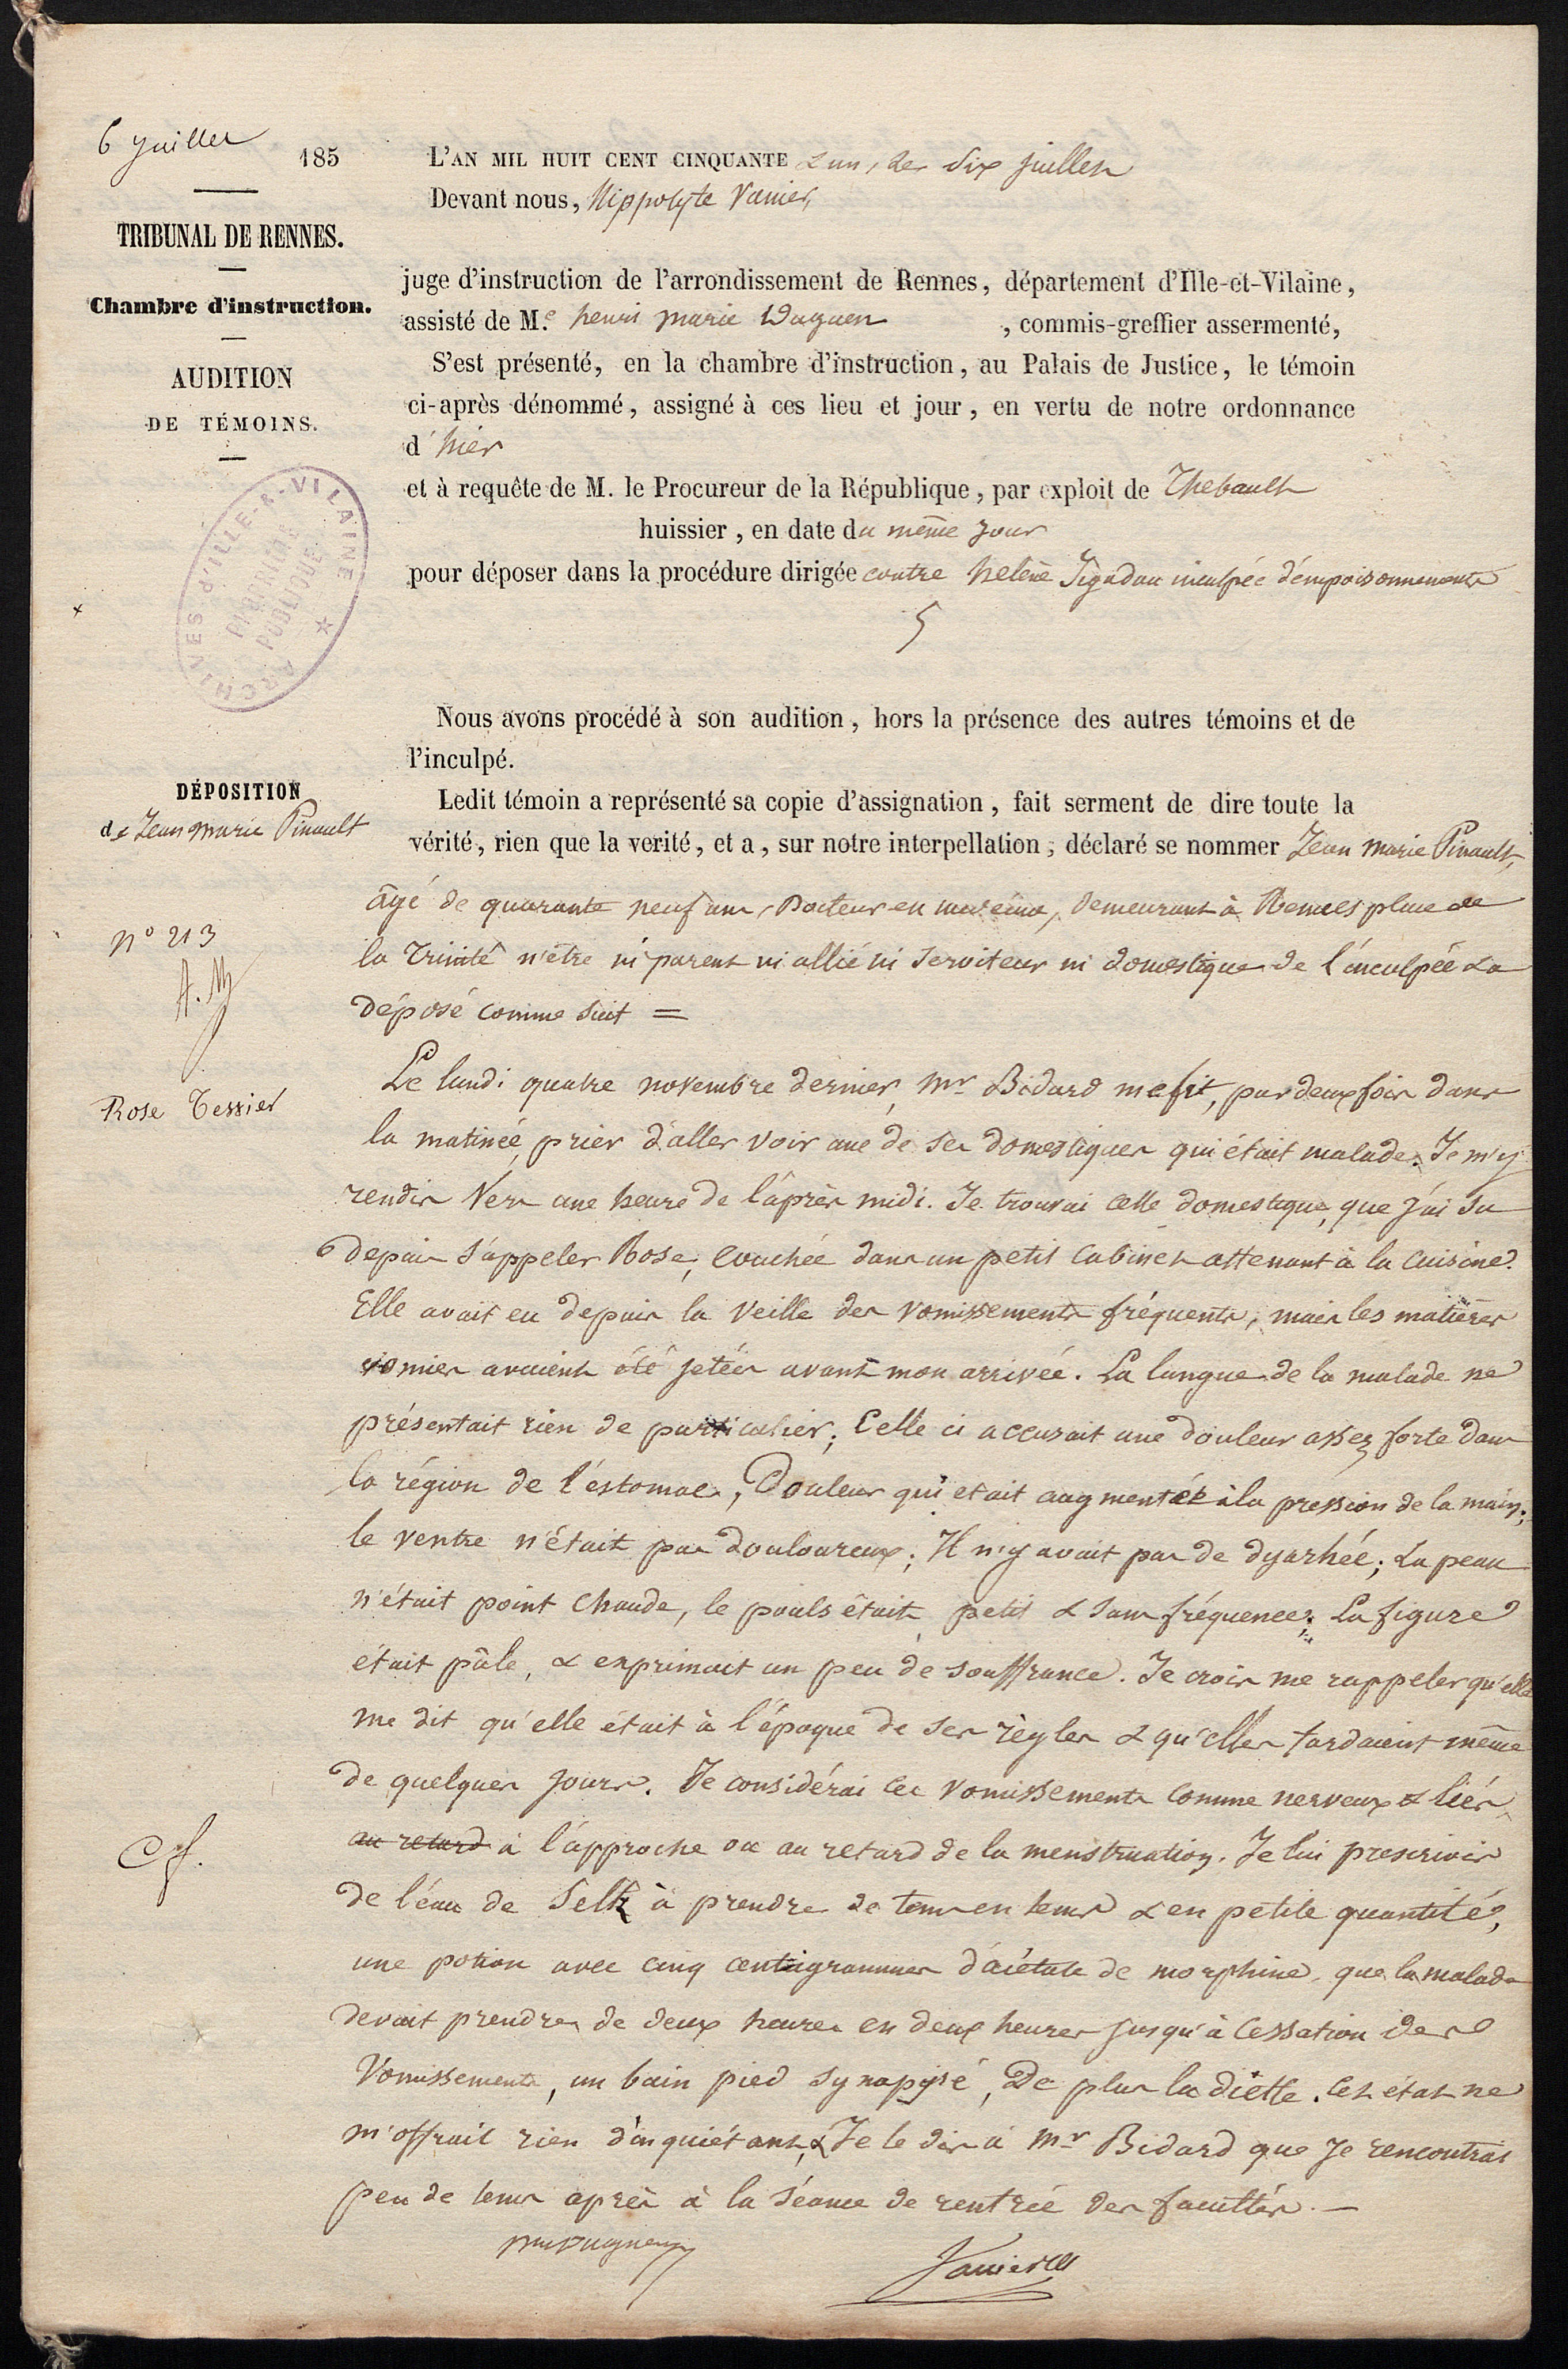 6 juillet 185
TRIBUNAL DE RENNES.
Chambre d'instruction.
AUDITION
DE TÉMOINS.
ARCHIVES D'ILLE-&-VILAINE ★
PROPRIÉTÉ
PUBLIQUE
L'AN MIL HUIT CENT CINQUANTE & un, le six juillet
Devant nous, Hippolyte Vanier,
juge d'instruction de l'arrondissement de Rennes, département d'Ille-et-Vilaine,
assisté de M.e henri marie , commis-greffier assermenté,
S'est présenté, en la chambre d'instruction, au Palais de Justice, le témoin
ci-après dénommé, assigné à ces lieu et jour, en vertu de notre ordonnance
d'hier
et à requête de M. le Procureur de la République, par exploit de Thebault
huissier, en date du même jour
pour déposer dans la procédure dirigée contre helène Jégadau inculpée d'empoisonnements
Nous avons procédé à son audition, hors la présence des autres témoins et de
l'inculpé.
DÉPOSITION
de Jean marie Pinault
Ledit témoin a représenté sa copie d'assignation, fait serment de dire toute la
vérité, rien que la verité, et a, sur notre interpellation, déclaré se nommer Jean Marie Pinault,
âgé de quarante neuf ans, Docteur en medecine, demeurant à Rennes place de
la Trinité n'être ni parent ni allié ni serviteur ni domestique de l'inculpée & a
déposé comme suit =
n° 213
Rose Tessier
Le lundi quatre novembre dernier, Mr Bidard me fit, par deux fois dans
la matinée, prier d'aller voir une de ses domestiques qui était malade. Je m'y
rendis vers une heure de l'après midi. Je trouvai cette domestique, que j'ai su
depuis s'appeler Rose, couchée dans un petit cabinet attenant à la cuisine.
Elle avait eu depuis la veille des vomissements fréquents, mais les matières
vomies avaient été jetées avant mon arrivée. La langue de la malade ne
présentait rien de particulier; Celle ci accusait une douleur assez forte dans
la région de l'estomac, Douleur qui etait augmentée à la pression de la main;
le ventre n'était pas douloureux; Il n'y avait pas de dyarhée; La peau
n'était point chaude, le pouls était petit & sans fréquence; La figure
était pâle, & exprimait un peu de souffrance. Je crois me rappeler qu'elle
me dit qu'elle était à l'époque de ses règles & qu'elles tardaient même
de quelques jours. Je considérai ces vomissements comme nerveux & liés
au retard à l'approche ou au retard de la menstruation. Je lui prescrivis
de l'eau de Seltz à prendre de tems en tems & en petite quantité,
une potion avec cinq centigrammes d'acétate de morphine que la malade
devait prendre de deux heures en deux heures jusqu'à cessation des
Vomissements, un bain pied synapisé, De plus la diette. Cet état ne
m'offrait rien d'inquiétant, & Je le dis à Mr Bidard que Je rencontrai
peu de tems après à la séance de rentrée des facultés. —
Vanier